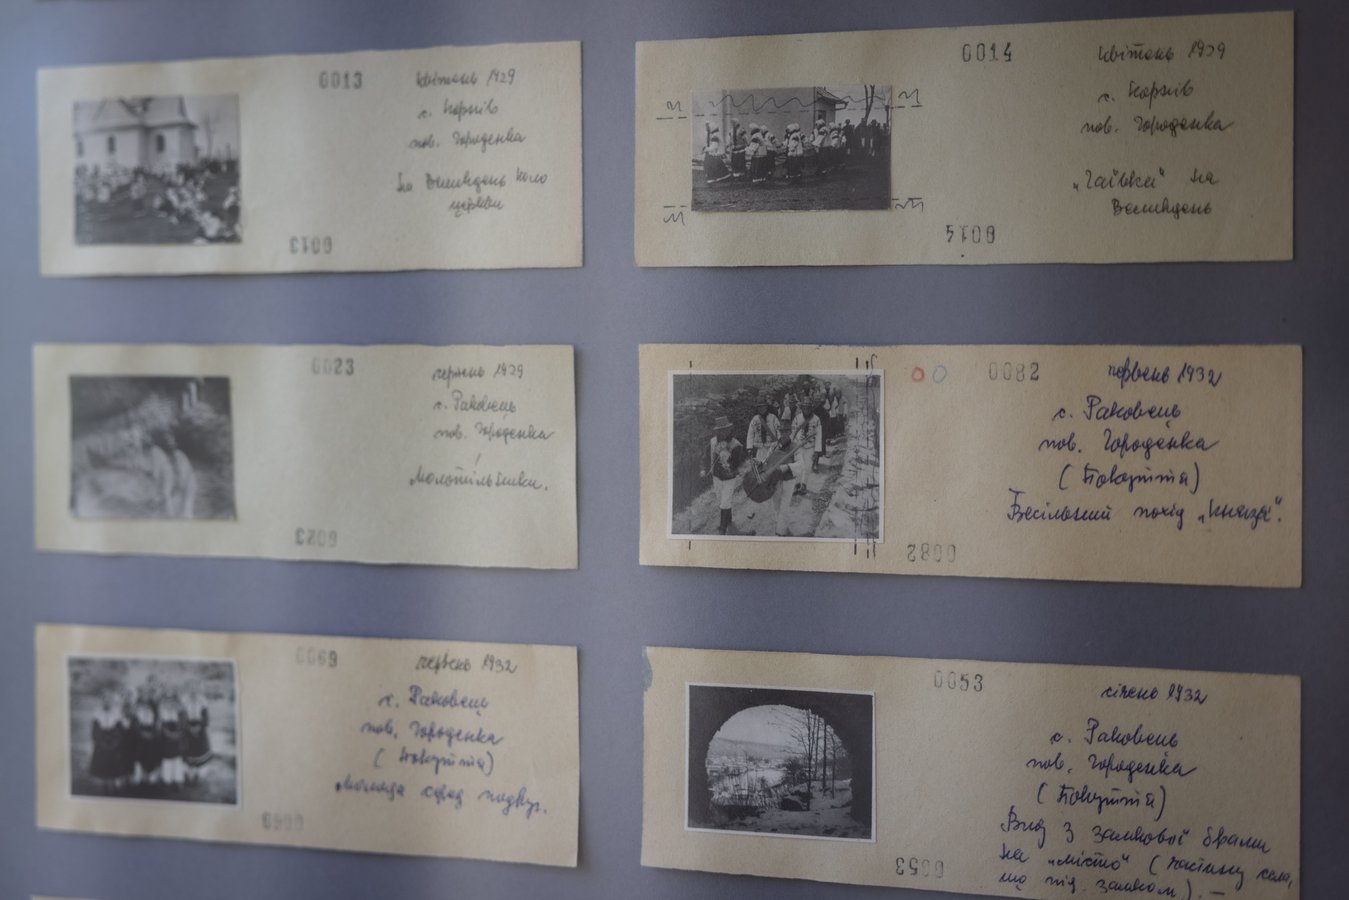 0013
квітень 1929
с. Корнів
пов. Городенка
на Великдень коло
церкви
0013
0014
квітень 1929
с. Корнів
пов. Городенка
„Гаївки" на
Великдень
0014
0023
червень 1929
с. Раковець
пов. Городенка
молотільники.
0023
0082
червень 1932
с. Раковець
пов. Городенка
(Покуття)
Весільний похід „князя".
0082
0069
червень 1932
с. Раковець
пов. Городенка
(Покуття)
молода серед подруг.
0069
0053
січень 1932
с. Раковець
пов. Городенка
(Покуття)
Вид з замкової брами
на „місто" (частину села,
що під замком). —
0053